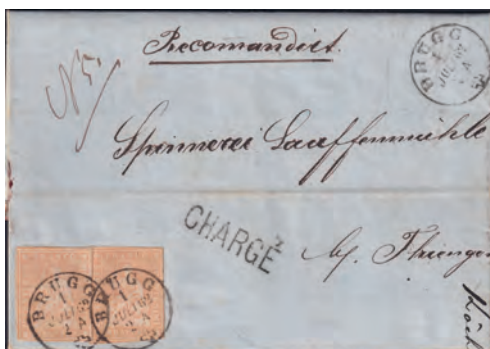 Recomandirt.
BRUGG
1
JULI 62
2 A
Spinnerei Lauffenmühle
CHARGÉ
by. Thiengen
BRUGG
1
JULI 62
2 A
BRUGG
1
JULI 62
2 A